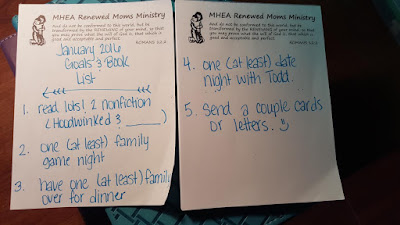 MHEA Renewed Moms Ministry
And do not be conformed to this world, but be
transformed by the RENEWING of your mind, so that
you may prove what the will of God is, that which is
good and acceptable and perfect.
ROMANS 12:2
January 2016
Goals & Book
List
1. read lots! 2 nonfiction
(Hoodwinked & ______)
2. one (at least) family
game night
3. have one (at least) family
over for dinner
MHEA Renewed Moms Ministry
And do not be conformed to this world, but be
transformed by the RENEWING of your mind, so that
you may prove what the will of God is, that which is
good and acceptable and perfect.
ROMANS 12:2
4. one (at least) date
night with Todd.
5. Send a couple cards
or letters. :)